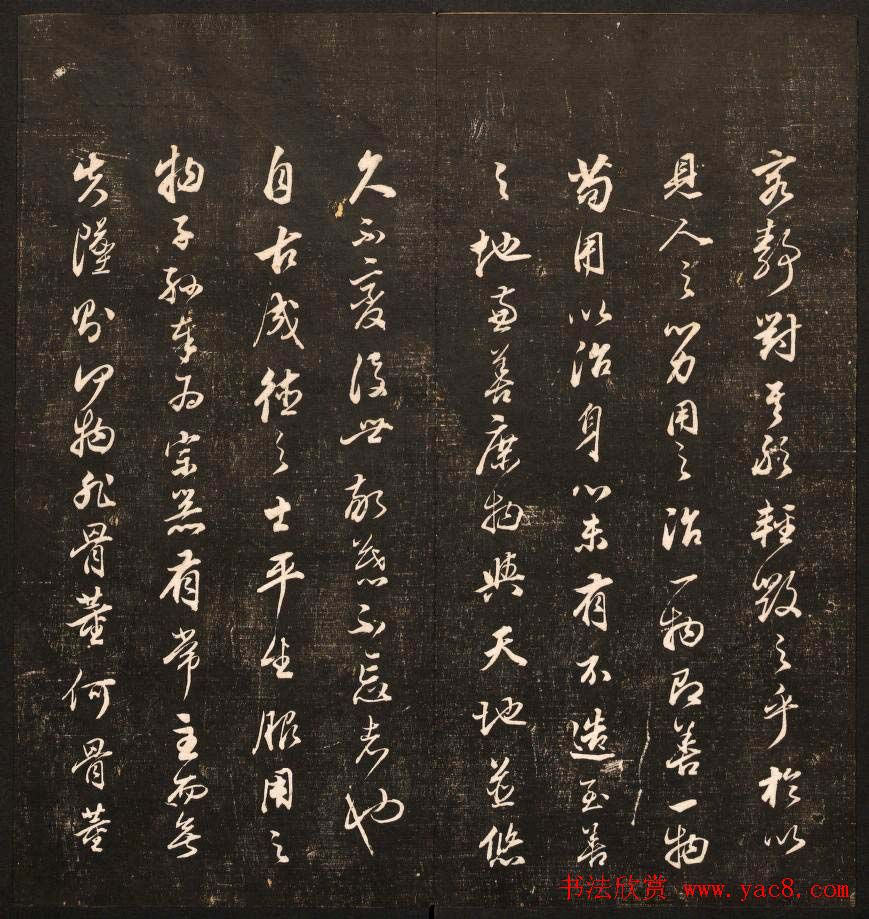 客靜對其能輕毀之乎於以
見人之心力用之治一物即善一物
苟用以治身心未有不造至善
之地兼善庶物與天地並悠
久不變後世敬慕不忘者也
自古成德之士平生服用之
物子孫奉為宗器有常主而無
失墜則何物非骨董何骨董
书法欣赏 www.yac8.com